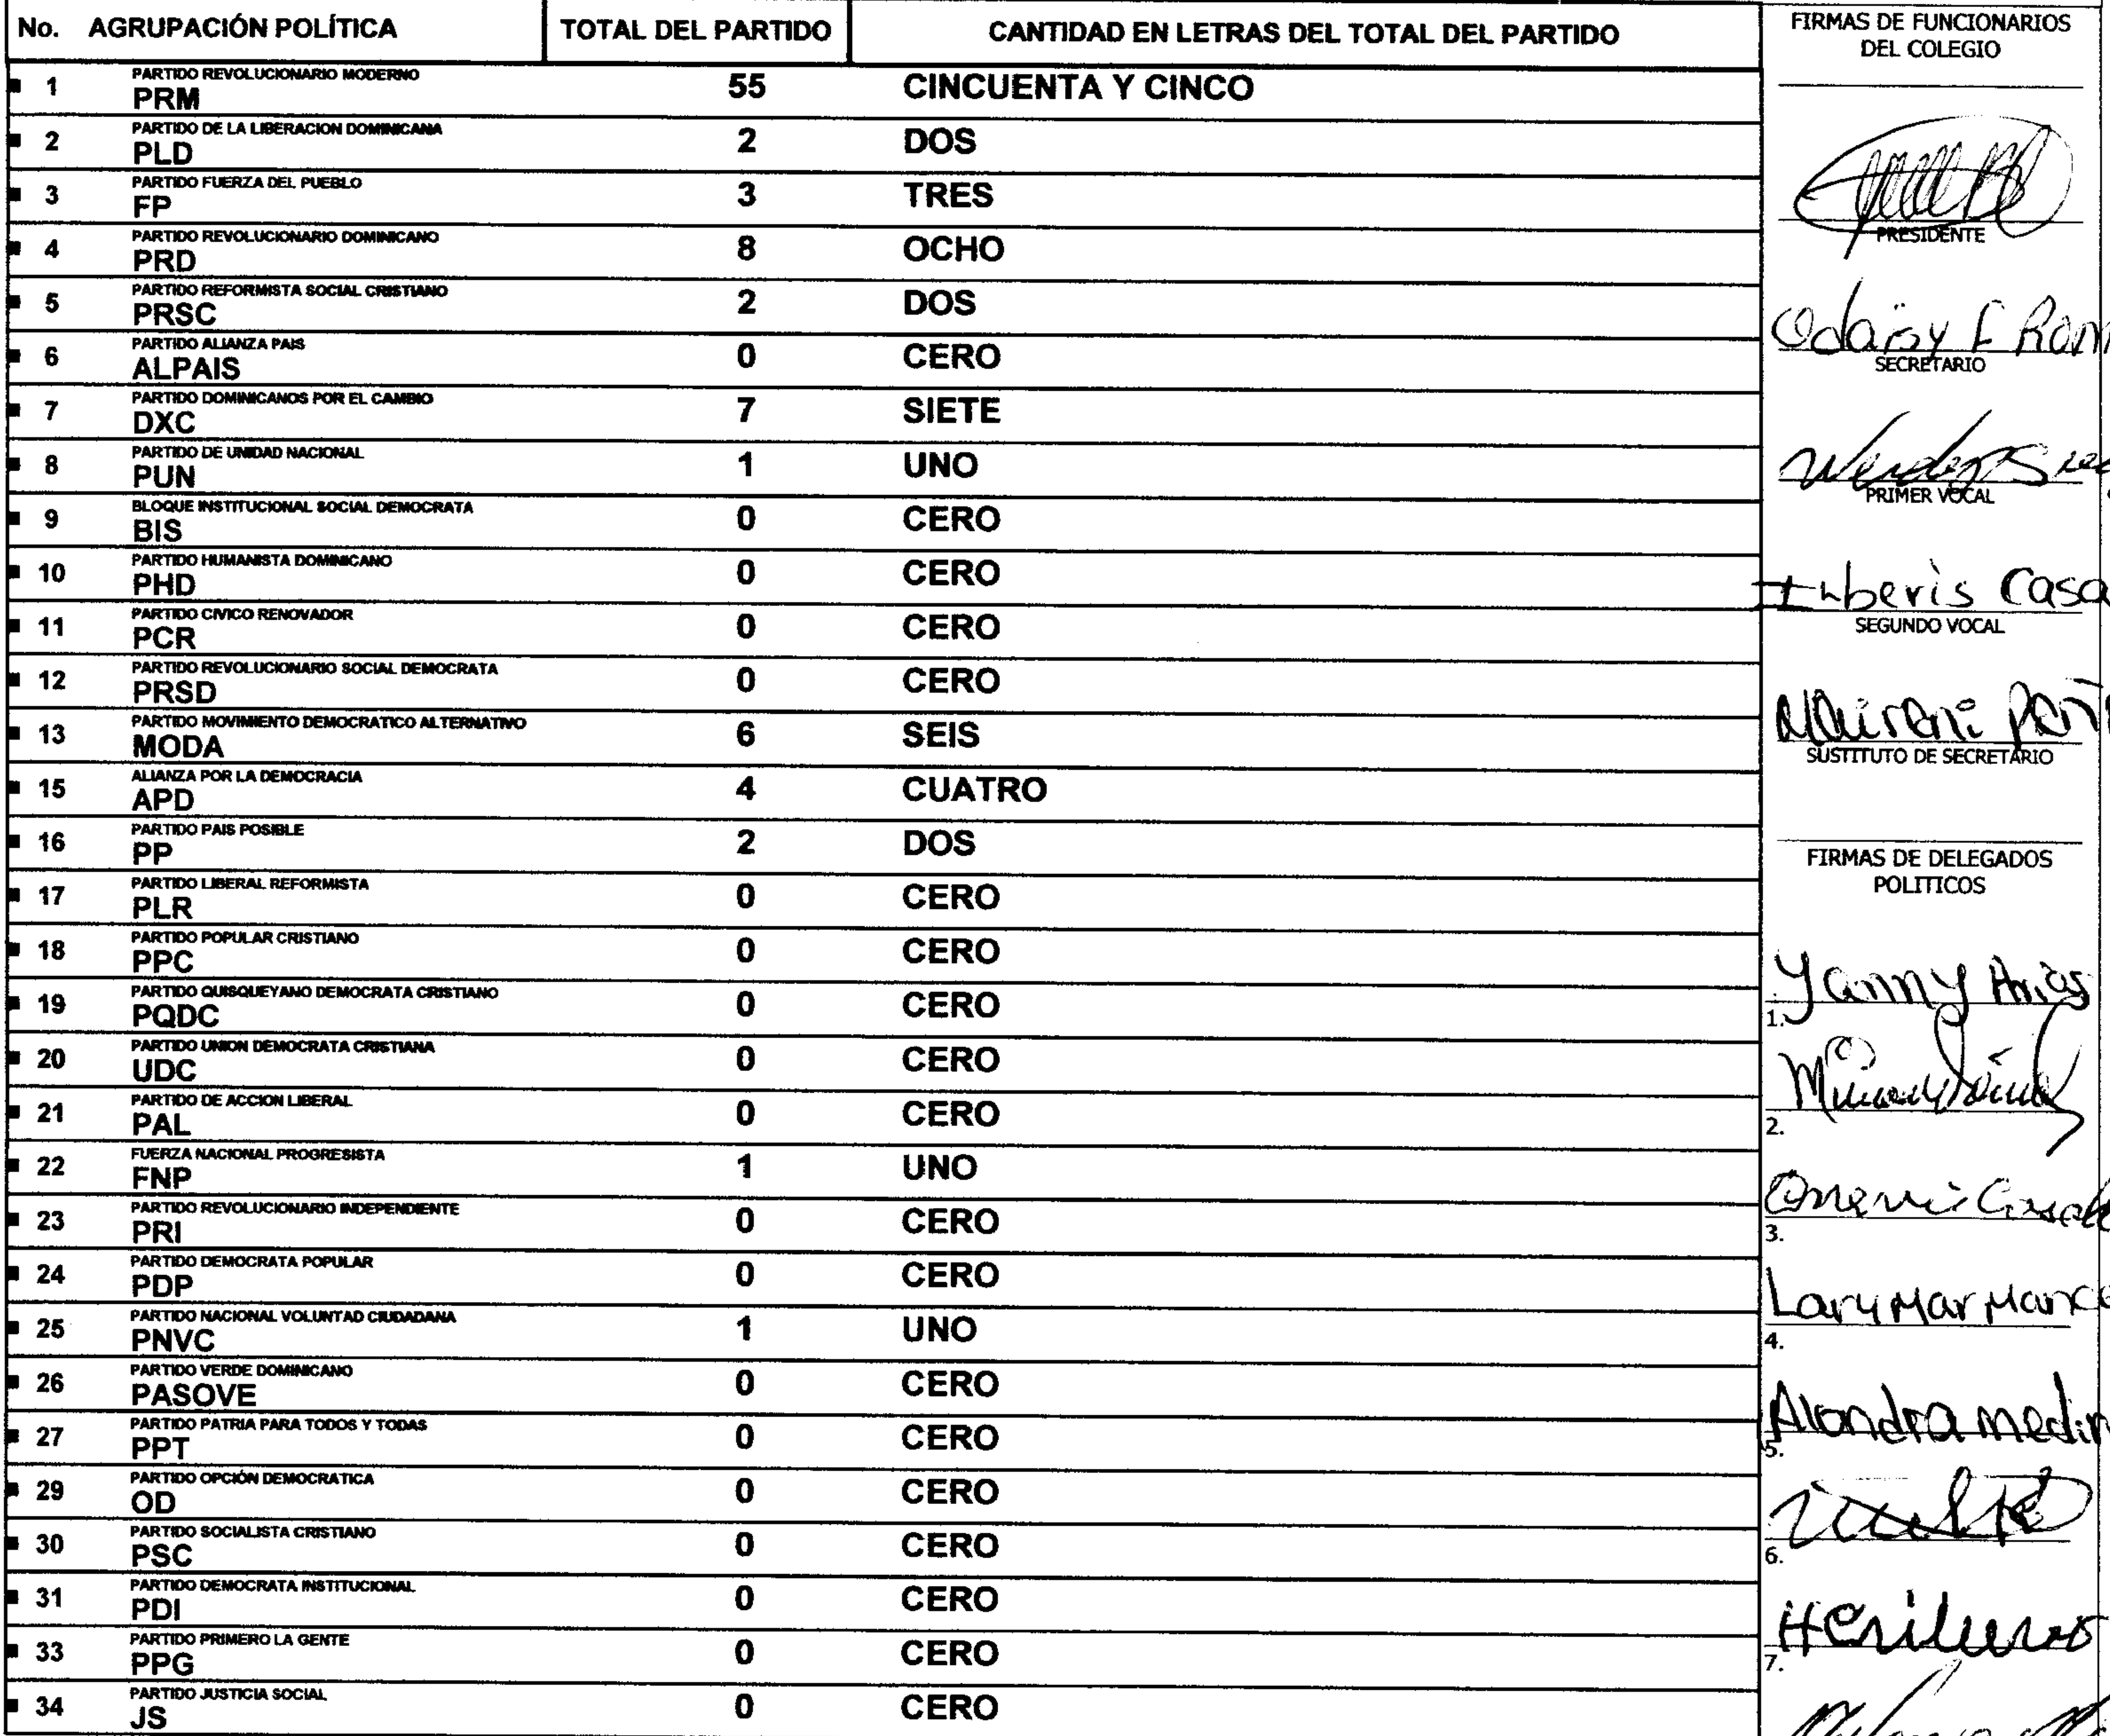 No. AGRUPACIÓN POLÍTICA TOTAL DEL PARTIDO CANTIDAD EN LETRAS DEL TOTAL DEL PARTIDO
1 PARTIDO REVOLUCIONARIO MODERNO
PRM 55 CINCUENTA Y CINCO
2 PARTIDO DE LA LIBERACION DOMINICANA
PLD 2 DOS
3 PARTIDO FUERZA DEL PUEBLO
FP 3 TRES
4 PARTIDO REVOLUCIONARIO DOMINICANO
PRD 8 OCHO
5 PARTIDO REFORMISTA SOCIAL CRISTIANO
PRSC 2 DOS
6 PARTIDO ALIANZA PAIS
ALPAIS 0 CERO
7 PARTIDO DOMINICANOS POR EL CAMBIO
DXC 7 SIETE
8 PARTIDO DE UNIDAD NACIONAL
PUN 1 UNO
9 BLOQUE INSTITUCIONAL SOCIAL DEMOCRATA
BIS 0 CERO
10 PARTIDO HUMANISTA DOMINICANO
PHD 0 CERO
11 PARTIDO CIVICO RENOVADOR
PCR 0 CERO
12 PARTIDO REVOLUCIONARIO SOCIAL DEMOCRATA
PRSD 0 CERO
13 PARTIDO MOVIMIENTO DEMOCRATICO ALTERNATIVO
MODA 6 SEIS
15 ALIANZA POR LA DEMOCRACIA
APD 4 CUATRO
16 PARTIDO PAIS POSIBLE
PP 2 DOS
17 PARTIDO LIBERAL REFORMISTA
PLR 0 CERO
18 PARTIDO POPULAR CRISTIANO
PPC 0 CERO
19 PARTIDO QUISQUEYANO DEMOCRATA CRISTIANO
PQDC 0 CERO
20 PARTIDO UNION DEMOCRATA CRISTIANA
UDC 0 CERO
21 PARTIDO DE ACCION LIBERAL
PAL 0 CERO
22 FUERZA NACIONAL PROGRESISTA
FNP 1 UNO
23 PARTIDO REVOLUCIONARIO INDEPENDIENTE
PRI 0 CERO
24 PARTIDO DEMOCRATA POPULAR
PDP 0 CERO
25 PARTIDO NACIONAL VOLUNTAD CIUDADANA
PNVC 1 UNO
26 PARTIDO VERDE DOMINICANO
PASOVE 0 CERO
27 PARTIDO PATRIA PARA TODOS Y TODAS
PPT 0 CERO
29 PARTIDO OPCIÓN DEMOCRATICA
OD 0 CERO
30 PARTIDO SOCIALISTA CRISTIANO
PSC 0 CERO
31 PARTIDO DEMOCRATA INSTITUCIONAL
PDI 0 CERO
33 PARTIDO PRIMERO LA GENTE
PPG 0 CERO
34 PARTIDO JUSTICIA SOCIAL
JS 0 CERO
FIRMAS DE FUNCIONARIOS
DEL COLEGIO
PRESIDENTE
Odaisy F Ram
SECRETARIO
PRIMER VOCAL
Casa
SEGUNDO VOCAL
SUSTITUTO DE SECRETARIO
FIRMAS DE DELEGADOS
POLITICOS
Yanny Arias
1.
2.
3.
Larymar Marce
4.
Alondra medin
5.
6.
7.